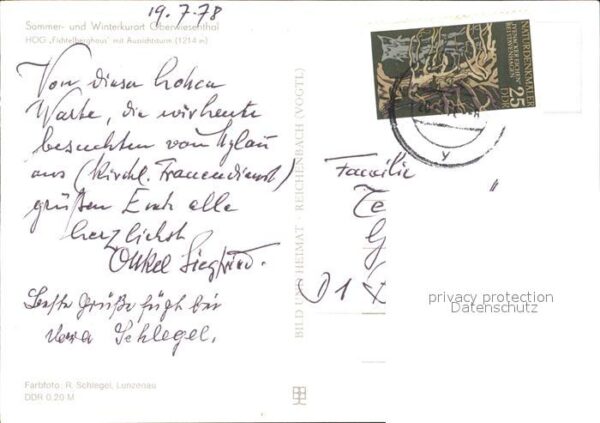 19.7.78
Sommer- und Winterkurort Oberwiesenthal
HOG „Fichtelberghaus" mit Aussichtsturm (1214 m)
Von dieser hohen
Warte, die wir heute
besuchten von
aus (Kirchl. Frauendienst)
grüßen Euch alle
herzlichst
Onkel Siegfried.
Beste Grüße fügt bei
Schlegel.
Farbfoto: R. Schlegel, Lunzenau
DDR 0.20 M
BILD UND HEIMAT · REICHENBACH (VOGTL)
NATURDENKMALER
IVENACKER EICHEN
BEI STAVENHAGEN
25
DDR
Familie
Te
G
privacy protection
Datenschutz